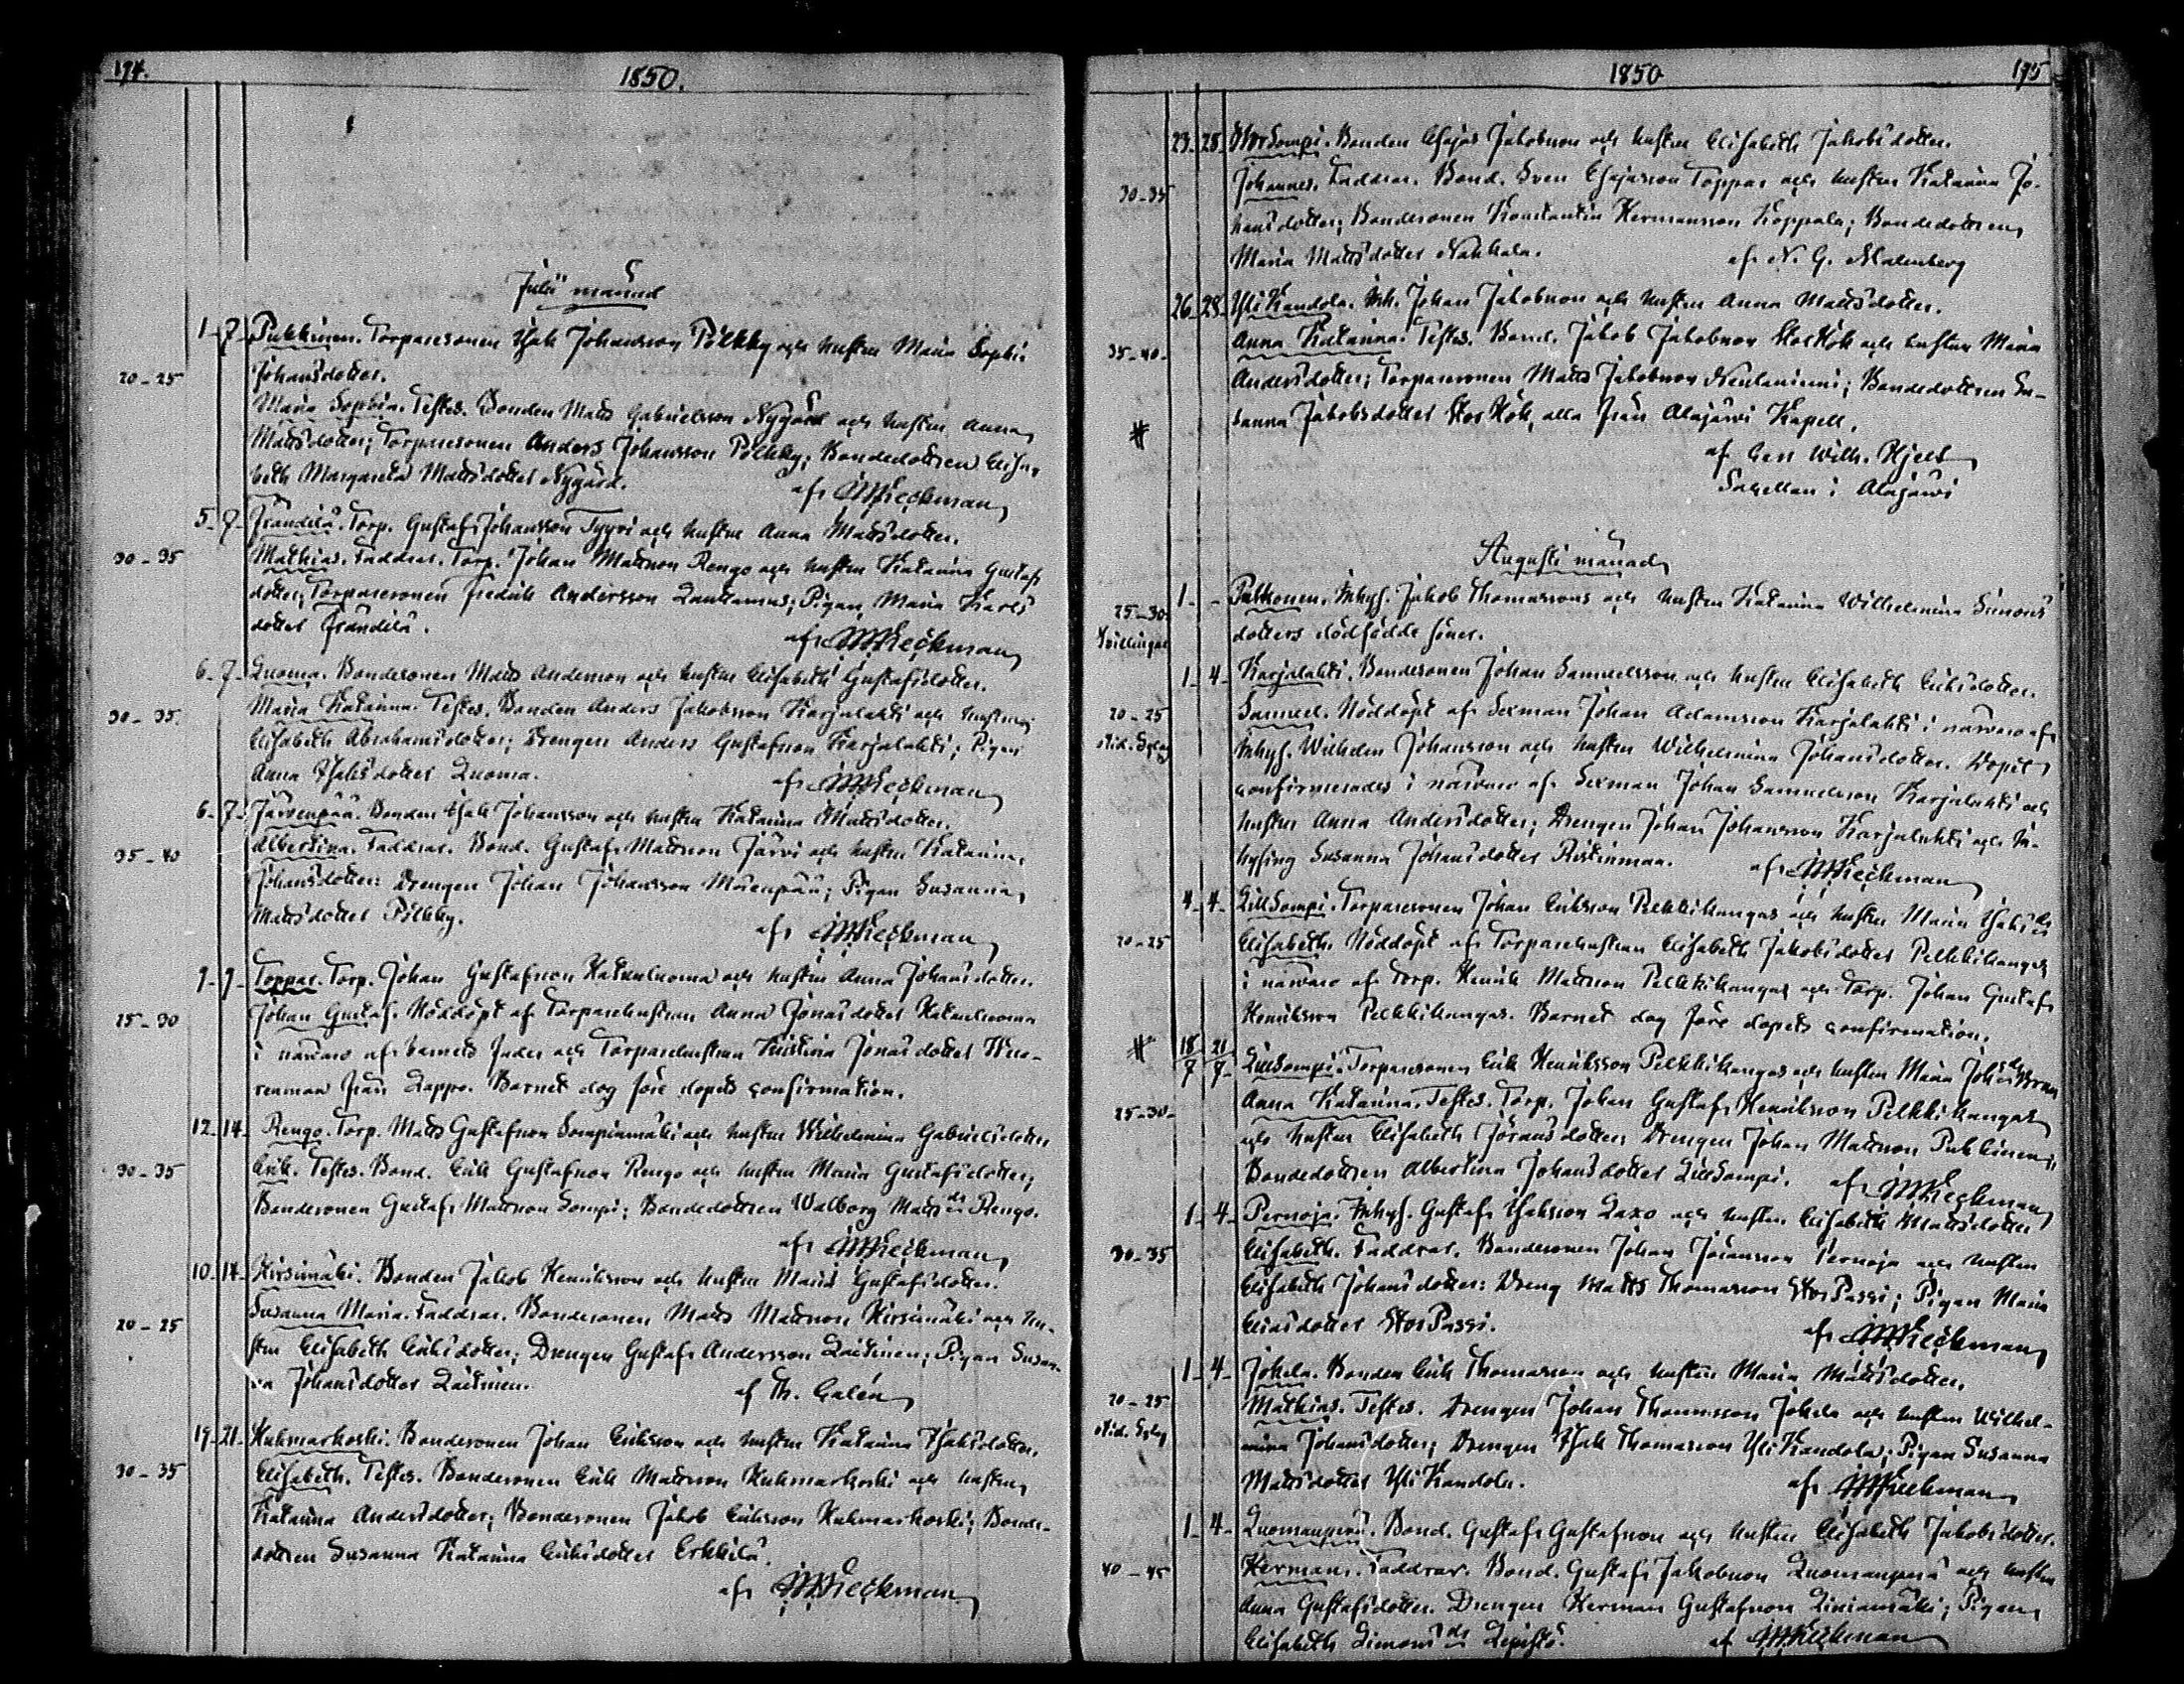 194.
1850.
Julii månad
1 - 7 - Pukkinen. Torparesonen Isak Johansson Pölkky och hustru Maria Sophia
20 - 25
Johansdotter.
Maria Sophia. Testes. Bonden Matts Gabrielsson Nygård och hustru Anna
Mattsdotter; Torparesonen Anders Johansson Pölkky; Bondedottren Elisa-
beth Margareta Mattsdotter Nygård. af Kieckman
5 - 7 - Frändilä. Torp. Gustaf Johansson Tyyri och hustru Anna Mattsdotter.
30 - 35
Mathias. Faddrar. Torp. Johan Mattsson Rengo och hustru Katarina Gustafs
dotter; Torparesonen Fredrik Andersson Lauttamus; Pigan Maria Karls
dotter Frändilä. af Kieckman
6 - 7 - Luoma. Bondesonen Matts Andersson och hustru Elisabeth Gustafsdotter.
30 - 35.
Maria Katarina. Testes. Bonden Anders Jakobsson Karjalahti och hustru
Elisabeth Abrahamsdotter; Drengen Anders Gustafsson Karjalahti; Pigan
Anna Isaksdotter Luoma. af Kieckman
6 - 7 - Järvenpää. Bonden Isak Johansson och hustru Katarina Mattsdotter.
35 - 40
Albertina. Faddrar. Bond. Gustaf Mattsson Järvi och hustru Katarina
Johansdotter: Drengen Johan Johansson Mäenpää; Pigan Susanna
Mattsdotter Pölkky. af Kieckman
7 - 7 - Toppar. Torp. Johan Gustafsson Katuluoma och hustru Anna Johansdotter.
25 - 30
Johan Gustaf. Nöddöpt af Torparehustrun Anna Jonasdotter Katuluoma
i närvaro af barnets fader och Torparehustrun Kristina Jonasdotter
från Lappo. Barnet dog före dopets confirmation.
12 - 14 - Rengo. Torp. Matts Gustafsson Sompinmäki och hustru Wilhelmina Gabrielsdotter
30 - 35
Erik. Testes. Bond. Erik Gustafsson Rengo och hustru Maria Gustafsdotter;
Bondesonen Gustaf Mattsson Sompi; Bondedottren Walborg Matts dr Rengo.
af Kieckman
10 - 14 - Hirsimäki. Bonden Jakob Henriksson och hustru Maria Gustafsdotter.
20 - 25
Susanna Maria. Faddrar. Bondesonen Matts Mattsson Hirsimäki och hu-
stru Elisabeth Eriksdotter; Drengen Gustaf Andersson Laitinen; Pigan Susan-
na Johansdotter Laitinen. af Th. Galén
19 - 21 - Kuhmarkoski. Bondesonen Johan Eriksson och hustru Katarina Isaksdotter.
30 - 35
Elisabeth. Testes. Bondesonen Erik Mattsson Kuhmarkoski och hustru
Katarina Andersdotter; Bondesonen Jakob Eriksson Kuhmarkoski; Bonde-
dottren Susanna Katarina Eriksdotter Erkkilä.
af Kieckman
1850
195
23 - 28 - StorSompi. Bonden Esajas Jakobsson och hustru Elisabeth Jakobsdotter.
30 - 35
Johannes. Faddrar. Bond. Sven Esajasson Toppar och hustru Katarina Jo-
hansdotter; Bondesonen Konstantin Hermansson Koppala; Bondedottren
Maria Mattsdotter Nahkala. af N. G. Malmberg
26 - 28 - YliKandola. Inh. Johan Jakobsson och hustru Anna Mattsdotter.
35 - 40 -
Anna Katarina. Testes. Bond. Jakob Jakobsson StorHök och hustru Maria
Andersdotter; Torparesonen Matts Jakobsson Neulaniemi; Bondedottren Su-
sanna Jakobsdotter StorHök, alla från Alajärvi Kapell.
#
af Carl Wilh. Hjelt
Sacellan i Alajärvi
Augusti månad
1 - - Pukkonen. Inhys. Jakob Thomassons och hustru Katarina Wilhelmina Simons
25 - 30
Tvillingar
dotters dödfödde söner.
1 - 4 - Karjalahti. Bondesonen Johan Samuelsson och hustru Elisabeth Eriksdotter.
20 - 25
Samuel. Nöddöpt af Sexman Johan Adamsson Karjalahti i närvaro af
Inhys. Wilhelm Johansson och hustru Wilhelmina Johansdotter. Dopet
confirmerades i närvaro af Sexman Johan Samuelsson Karjalahti och
hustru Anna Andersdotter; Drengen Johan Johansson Karjalahti och In-
hysing Susanna Johansdotter Ristinmaa. af Kieckman
4 - 4 - LillSompi. Torparesonen Johan Eriksson Pelkkikangas och hustru Maria Isaks dr
20 - 25
Elisabeth. Nöddöpt af Torparehustrun Elisabeth Jakobsdotter Pelkkikangas
i närvaro af Torp. Henrik Mattsson Pelkkikangas och Torp. Johan Gustaf
Henriksson Pelkkikangas. Barnet dog före dopets confirmation.
# 18/7 21/7 - LillSompi. Torparesonen Erik Henriksson Pelkkikangas och hustru Maria Johs dr
25 - 30 -
Anna Katarina. Testes. Torp. Johan Gustaf Henriksson Pelkkikangas
och hustru Elisabeth Göransdotter; Drengen Johan Mattsson Pukkinen;
Bondedottren Albertina Johansdotter LillSompi. af Kieckman
1 - 4 - Pernoja. Inhys. Gustaf Isaksson Laxo och hustru Elisabeth Mattsdotter
30 - 35
Elisabeth. Faddrar. Bondesonen Johan Johansson Pernoja och hustru
Elisabeth Johansdotter: Dreng Matts Thomasson StorPassi; Pigan Maria
Eliasdotter StorPassi. af Kieckman
1 - 4 - Jokela. Bonden Erik Thomasson och hustru Maria Mattsdotter.
20 - 25
Mathias. Testes. Drengen Johan Thomasson Jokela och hustru Wilhel-
mina Johansdotter; Drengen Isak Thomasson YliKandola; Pigan Susanna
Mattsdotter YliKandola. af Kieckman
1 - 4 - Luomanperä. Bond. Gustaf Gustafsson och hustru Elisabeth Jakobsdotter.
40 - 45
Herman. Faddrar. Bond. Gustaf Jakobsson Luomanperä och hustru
Anna Gustafsdotter. Drengen Herman Gustafsson Liniamäki; Pigan
Elisabeth Simons dr Lepistö. af Kieckman